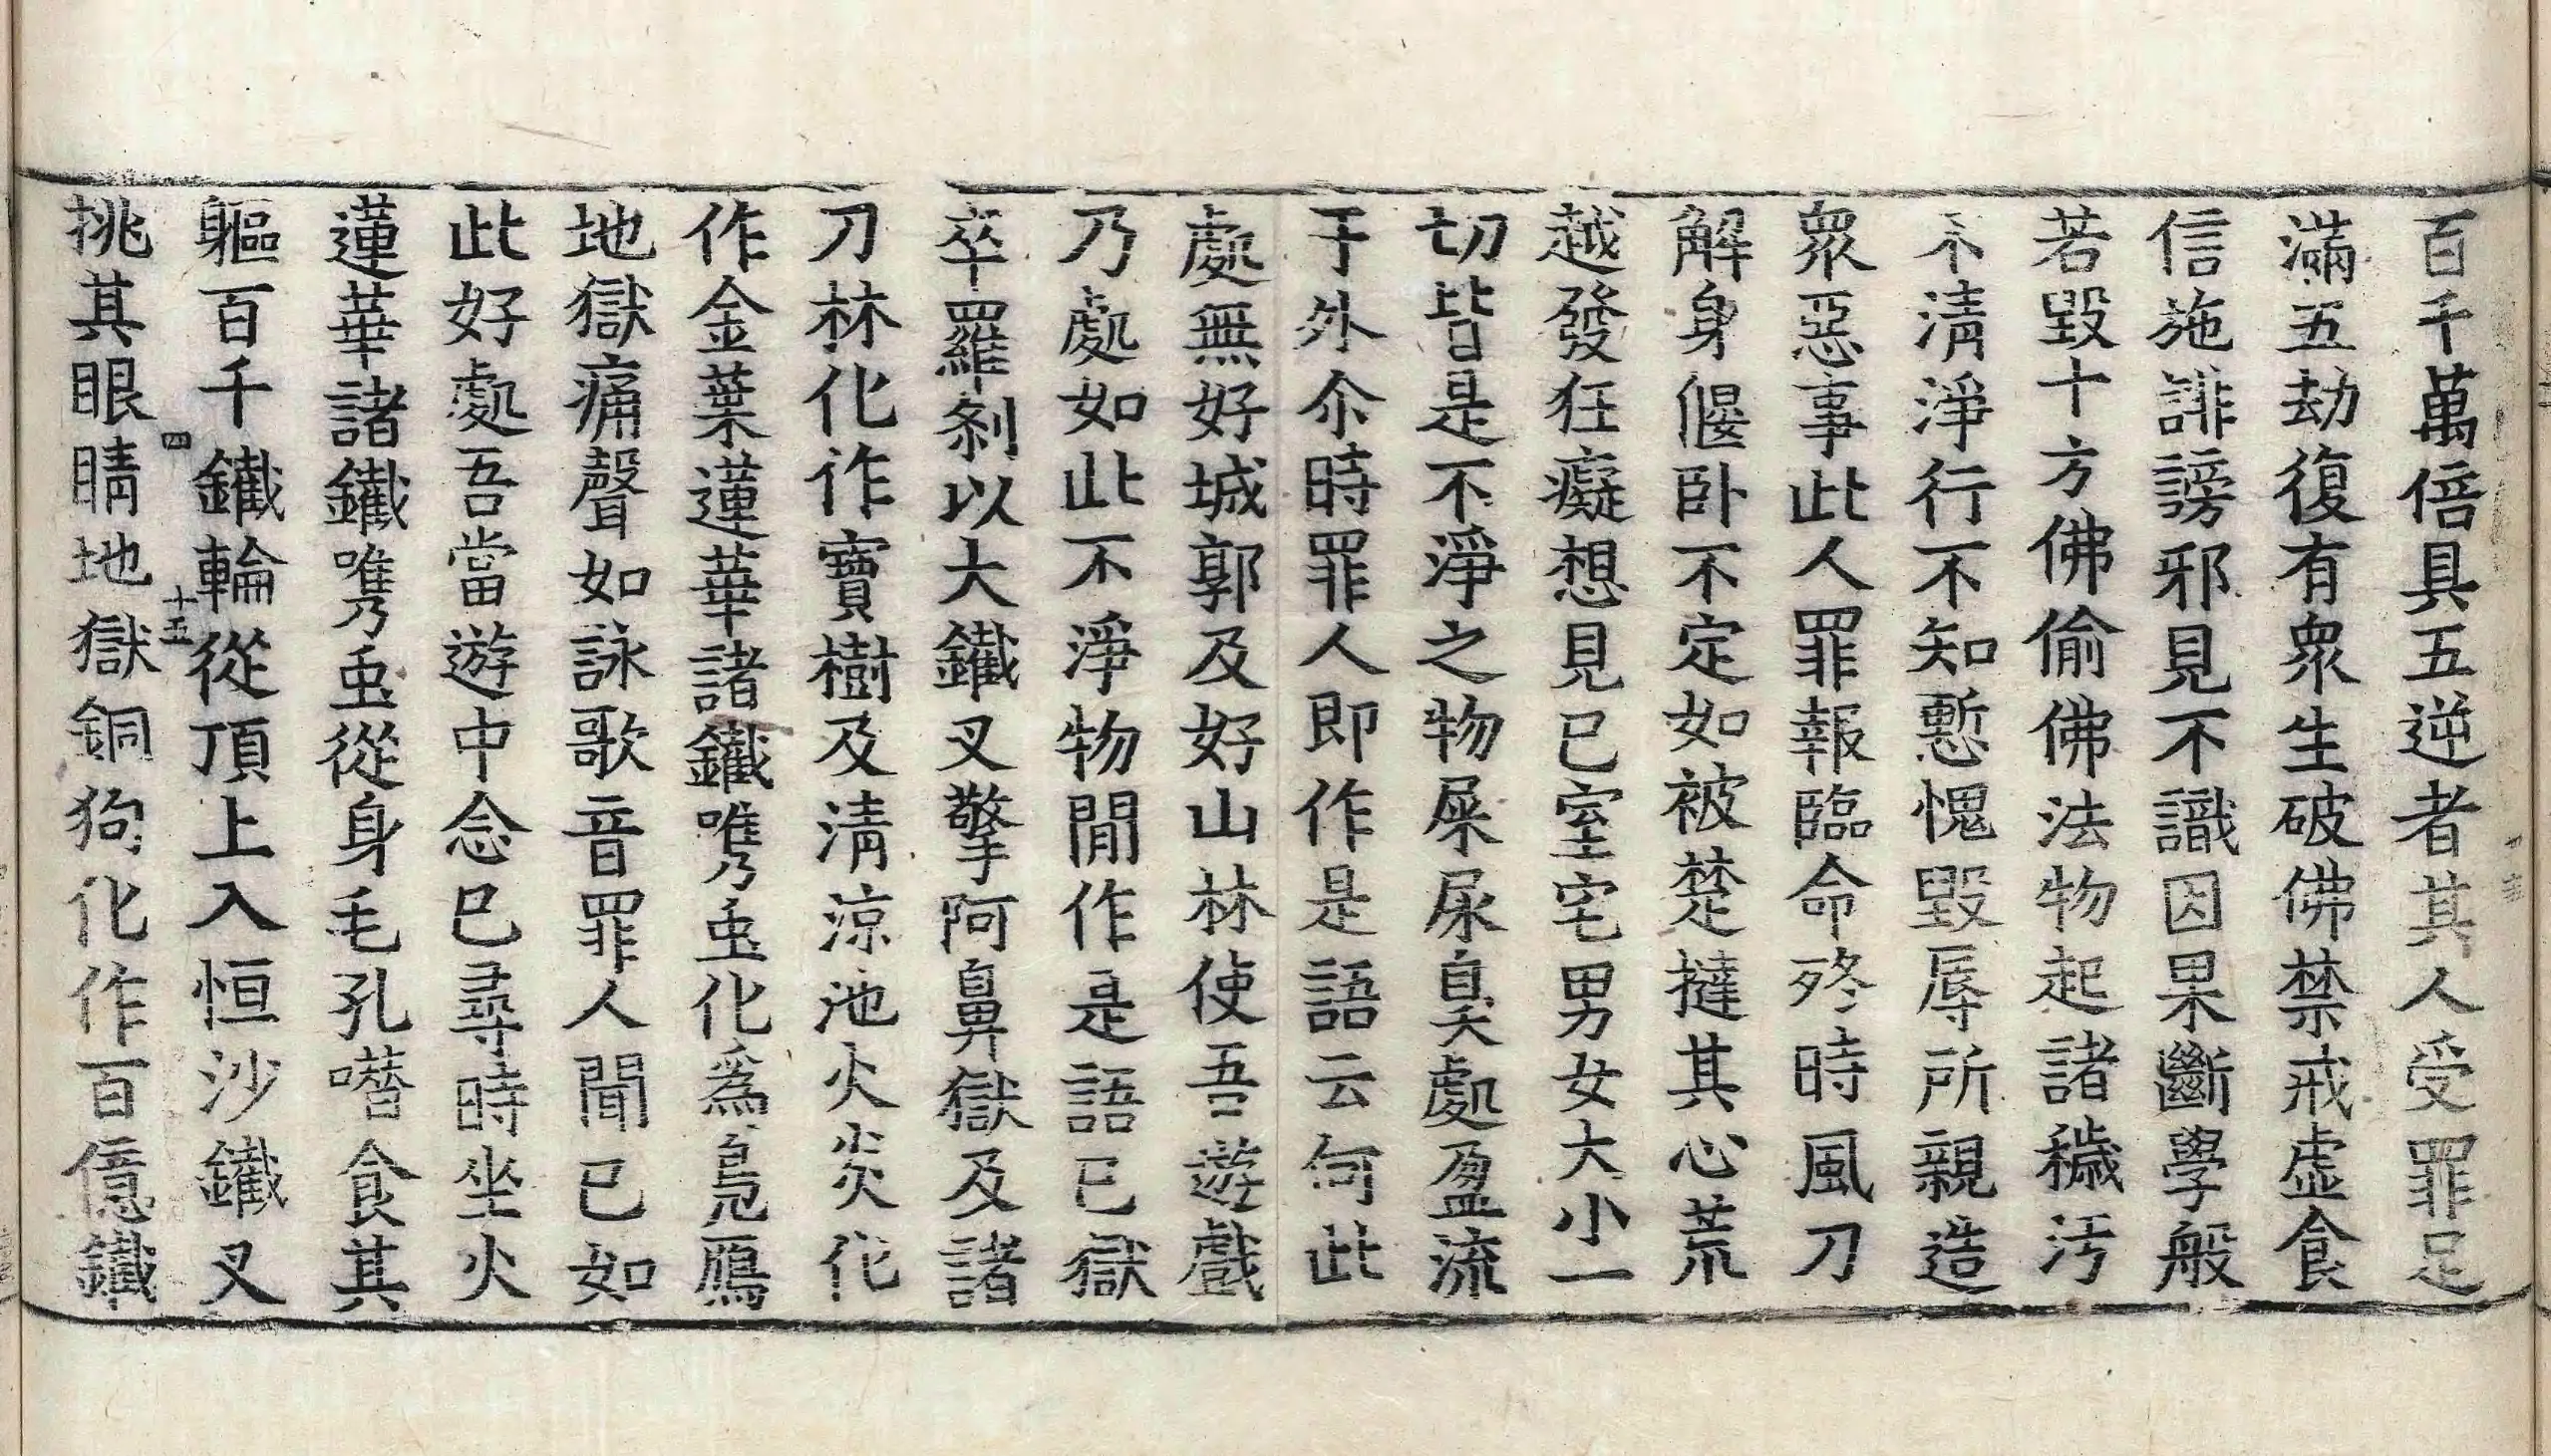 百千萬倍具五逆者其人受罪足
滿五劫復有眾生破佛禁戒虛食
信施誹謗邪見不識因果斷學般
若毀十方佛偷佛法物起諸穢汚
不清淨行不知慙愧毀辱所親造
眾惡事此人罪報臨命終時風刀
解身偃卧不定如被楚撻其心荒
越發狂癡想見已室宅男女大小一
切皆是不淨之物屎尿臭處盈流
于外尒時罪人即作是語云何此
處無好城郭及好山林使吾遊戲
乃處如此不淨物間作是語已獄
卒羅剎以大鐵叉擎阿鼻獄及諸
刀林化作寶樹及清涼池火炎化
作金葉蓮華諸鐵㗱虫化為鳧鴈
地獄痛聲如詠歌音罪人聞已如
此好處吾當遊中念已尋時坐火
蓮華諸鐵㗱虫從身毛孔噆食其
軀百千鐵輪從頂上入恒沙鐵叉
四 十五
挑其眼睛地獄銅狗化作百億鐵